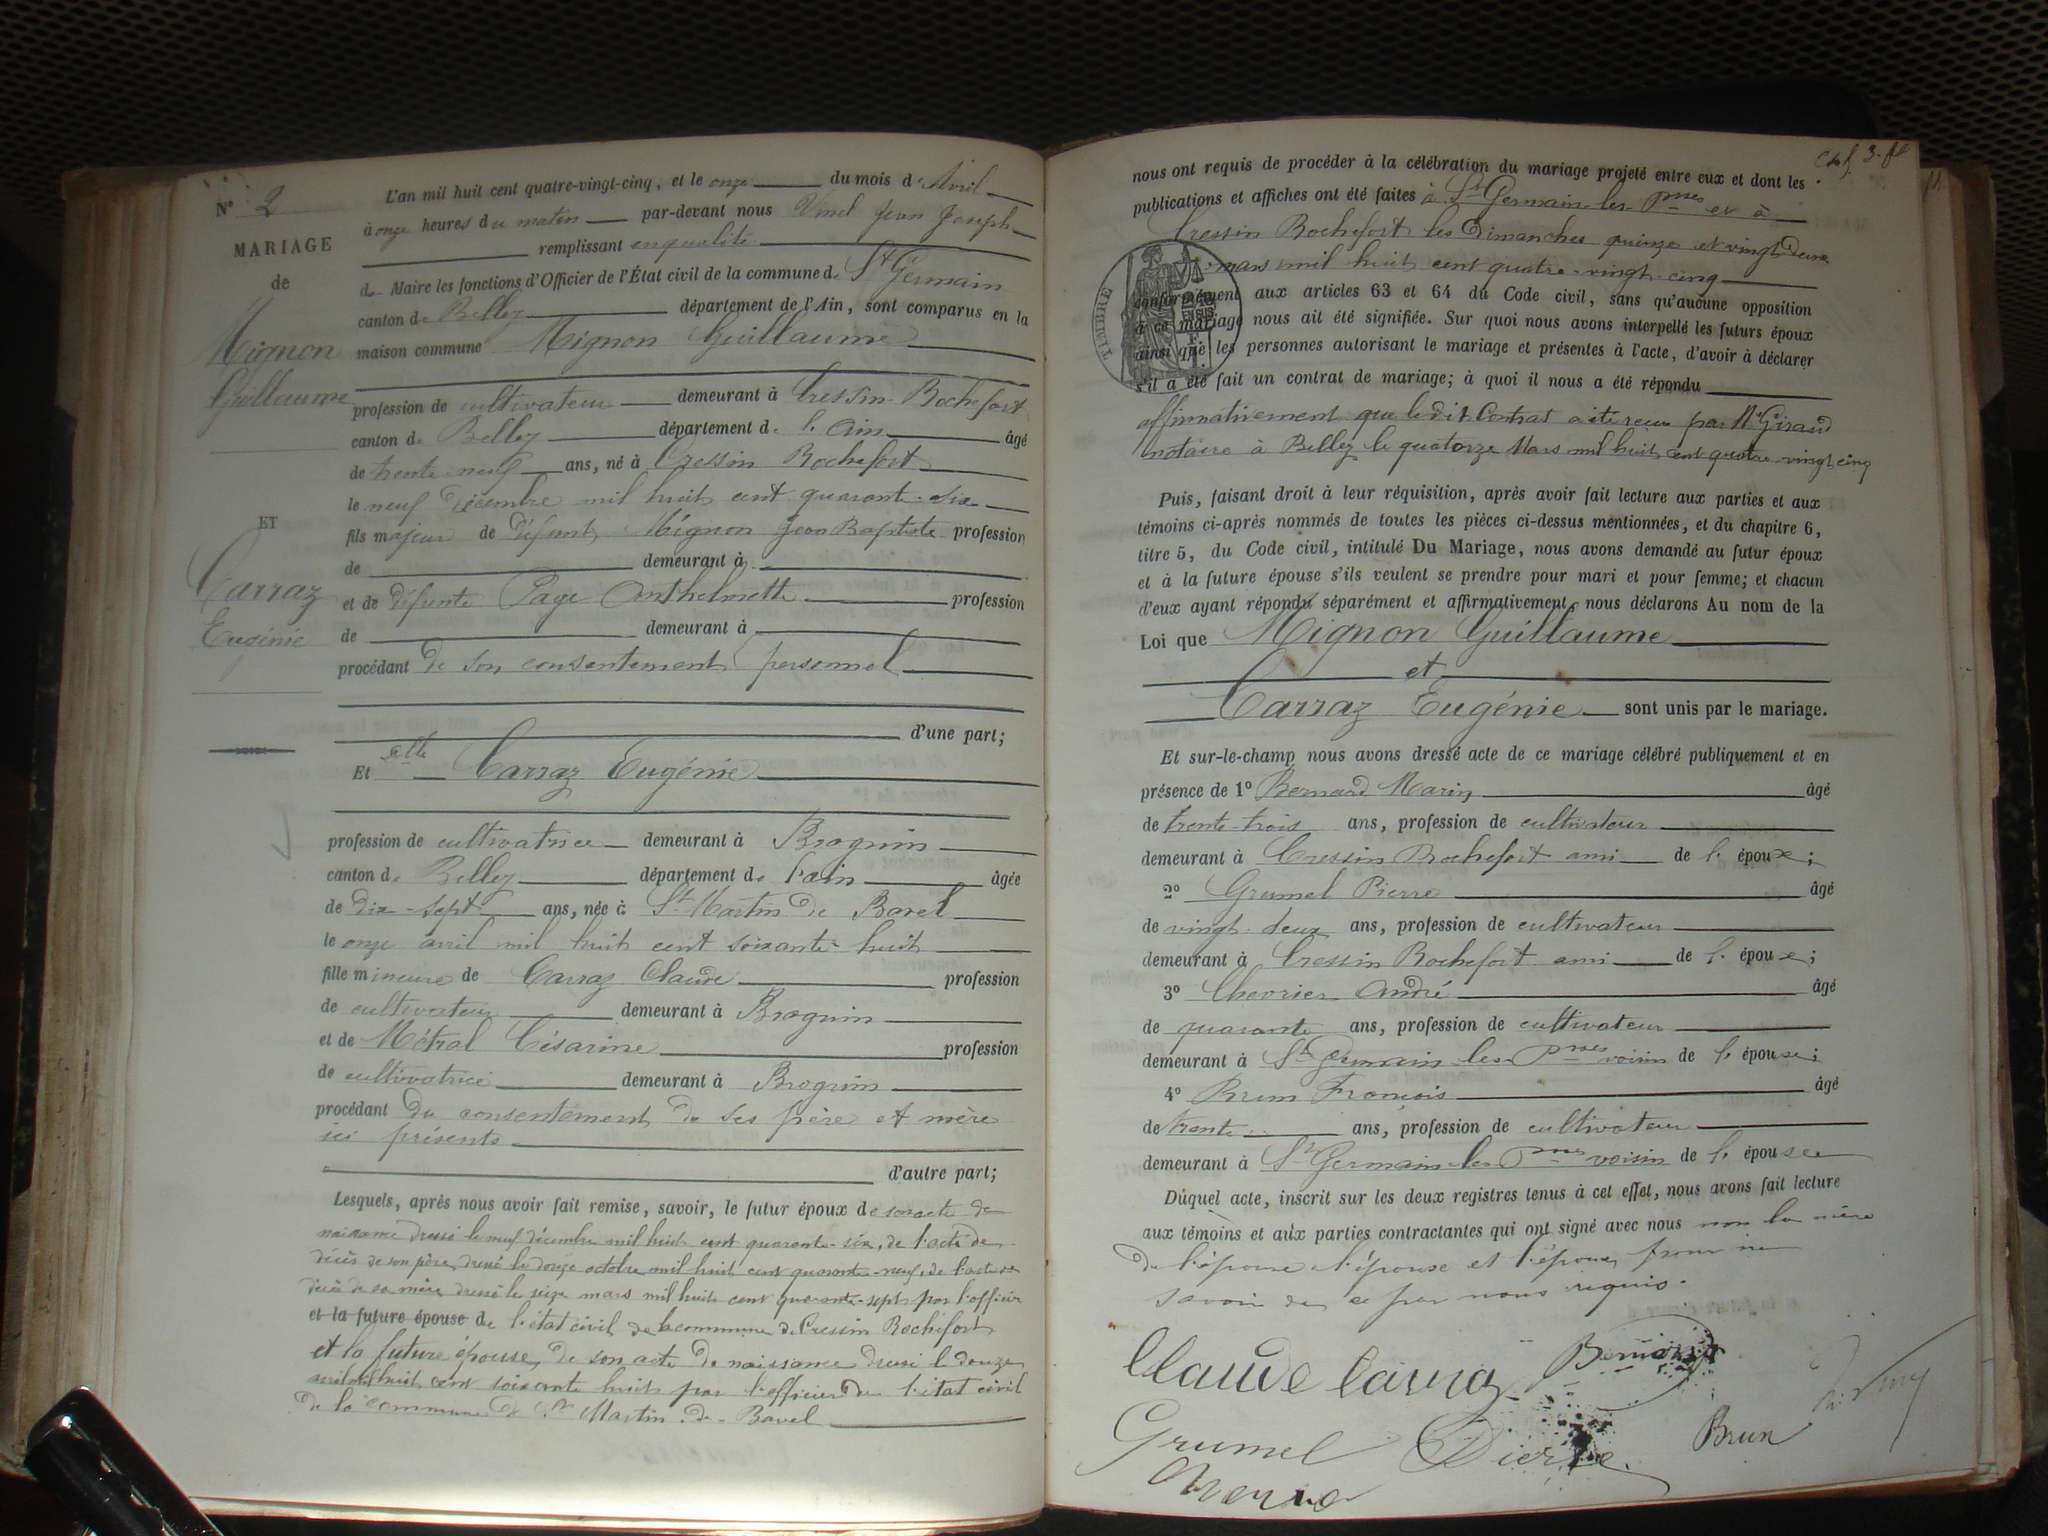 N° 2
MARIAGE
de
Mignon
Guillaume
ET
Carraz
Eugénie
L'an mil huit cent quatre-vingt-cinq, et le onze du mois d'Avril
à onze heures du matin par-devant nous Jean Joseph
remplissant en qualité
de Maire les fonctions d'Officier de l'État civil de la commune de St Germain
canton de Belley département de l'Ain, sont comparus en la
maison commune Mignon Guillaume
profession de cultivateur demeurant à Cressin-Rochefort
canton de Belley département de l'Ain âgé
de trente neuf ans, né à Cressin Rochefort
le neuf Décembre mil huit cent quarante-six
fils majeur de défunt Mignon Jean Baptiste profession
de demeurant à
et de défunte Page Anthelmette profession
de demeurant à
procédant de son consentement personnel
d'une part;
Et elle Carraz Eugénie
profession de cultivatrice demeurant à
canton de Belley département de l'ain âgée
de dix-sept ans, née à St Martin de Bavel
le onze avril mil huit cent soixante-huit
fille mineure de Carraz Claude profession
de cultivateur demeurant à
et de Métral Césarine profession
de cultivatrice demeurant à
procédant du consentement de ses père et mère
ici présents
d'autre part;
Lesquels, après nous avoir fait remise, savoir, le futur époux de son acte de
naissance dressé le neuf décembre mil huit cent quarante-six, de l'acte de
décès de son père dressé le douze octobre mil huit cent quarante-neuf, de l'acte de
décès de sa mère dressé le seize mars mil huit cent quarante-sept par l'officier
et la future épouse de l'état civil de la commune de Cressin Rochefort
et la future épouse, de son acte de naissance dressé le douze
avril mil huit cent soixante huit par l'officier de l'état civil
de la commune de St Martin-de-Bavel
nous ont requis de procéder à la célébration du mariage projeté entre eux et dont les
publications et affiches ont été faites à St Germain les Pnes et à
Cressin Rochefort les Dimanches quinze et vingt deux
mars mil huit cent quatre-vingt-cinq
TIMBRE
conformément aux articles 63 et 64 du Code civil, sans qu'aucune opposition
à ce mariage nous ait été signifiée. Sur quoi nous avons interpellé les futurs époux
ainsi que les personnes autorisant le mariage et présentes à l'acte, d'avoir à déclarer
s'il a été fait un contrat de mariage; à quoi il nous a été répondu
affirmativement que ledit Contrat a été reçu par Me Giraud
notaire à Belley le quatorze Mars mil huit cent quatre-vingt cinq
Puis, faisant droit à leur réquisition, après avoir fait lecture aux parties et aux
témoins ci-après nommés de toutes les pièces ci-dessus mentionnées, et du chapitre 6,
titre 5, du Code civil, intitulé Du Mariage, nous avons demandé au futur époux
et à la future épouse s'ils veulent se prendre pour mari et pour femme; et chacun
d'eux ayant répondu séparément et affirmativement, nous déclarons Au nom de la
Loi que Mignon Guillaume
et
Carraz Eugénie sont unis par le mariage.
Et sur-le-champ nous avons dressé acte de ce mariage célébré publiquement et en
présence de 1° Bernard Marin âgé
de trente-trois ans, profession de cultivateur
demeurant à Cressin Rochefort ami de l'époux;
2° Grumel Pierre âgé
de vingt-deux ans, profession de cultivateur
demeurant à Cressin Rochefort ami de l'époux;
3° Chevrier André âgé
de quarante ans, profession de cultivateur
demeurant à St Germain-les-Pnes voisin de l'épouse;
4° Brun François âgé
de trente ans, profession de cultivateur
demeurant à St Germain-les Pnes voisin de l'épouse
Duquel acte, inscrit sur les deux registres tenus à cet effet, nous avons fait lecture
aux témoins et aux parties contractantes qui ont signé avec nous non la mère
de l'épouse l'épouse et l'époux pour ne
savoir de ce par nous requis.
Claude Carraz
Grumel Pierre
Brun